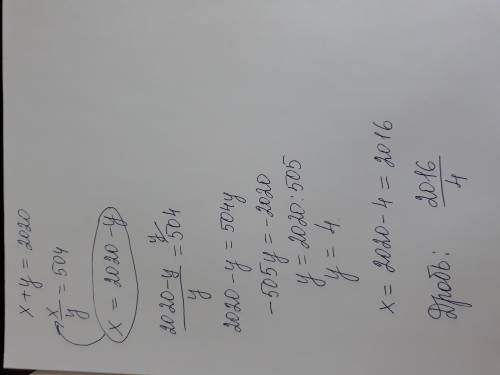 x + y = 2020
x/y = 504
x = 2020 - y
(2020 - y)/y = 504
2020 - y = 504y
-505y = -2020
y = 2020 : 505
y = 4.
x = 2020 - 4 = 2016
Дробь: 2016/4